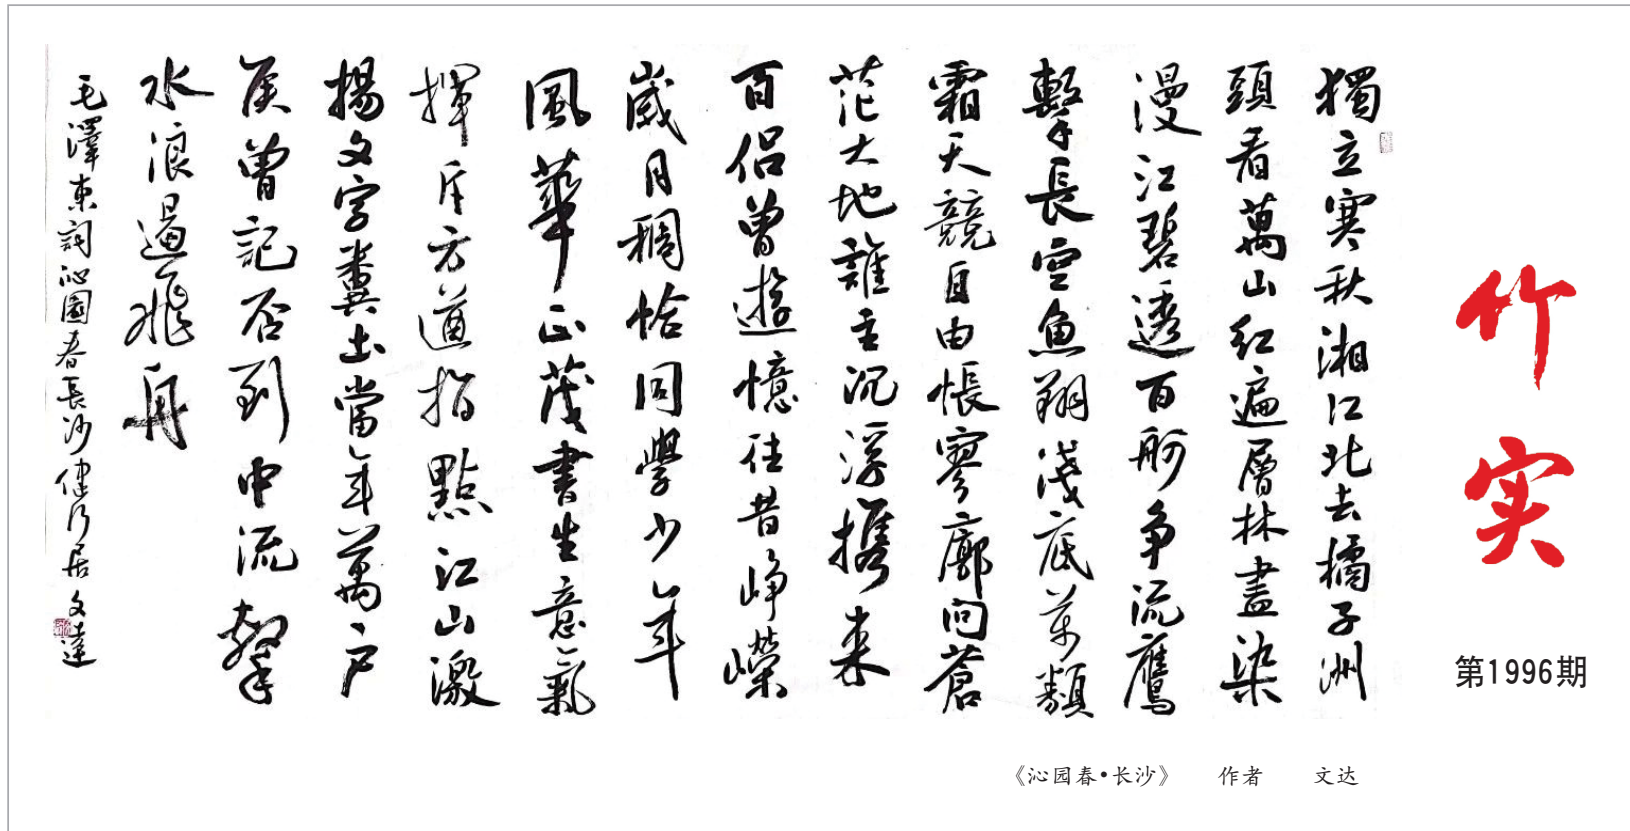 獨立寒秋湘江北去橘子洲
頭看萬山红遍層林盡染
漫江碧透百舸争流鷹
擊長空魚翔淺底萬類
霜天競自由悵寥廓问蒼
茫大地誰主沉浮携来
百侣曾遊憶往昔峥嶸
歲月稠恰同學少年
風華正茂書生意氣
揮斥方遒指點江山激
揚文字糞土當年萬户
侯曾記否到中流擊
水浪遏飛舟
毛澤東詞沁園春長沙健行居文達
竹实
第1996期
《沁园春•长沙》 作者 文达